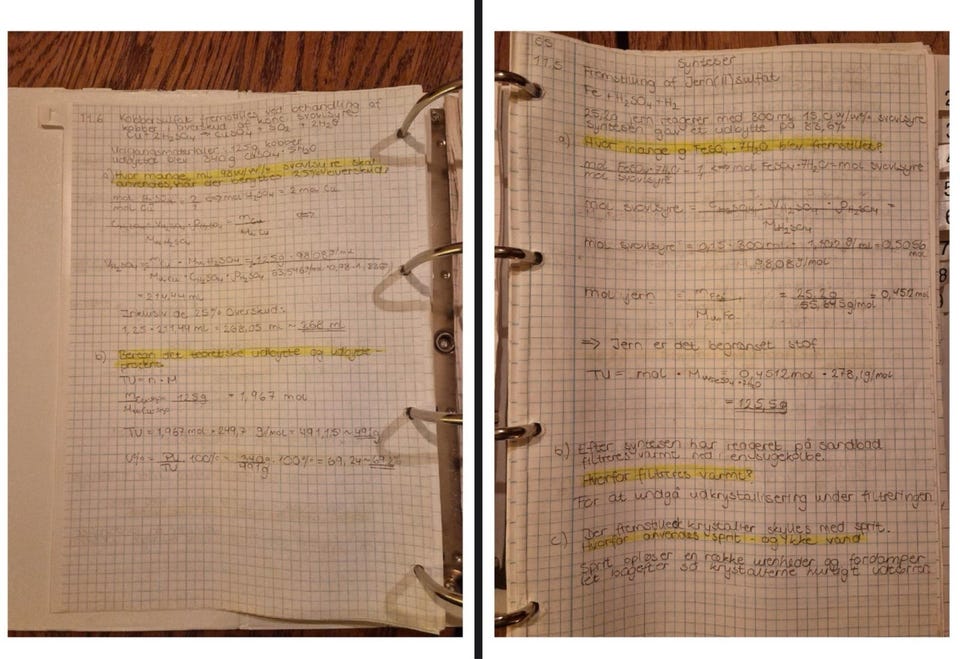 11.6 Kobbersulfat fremstilles ved behandling af
kobber i overskud af konc. svovlsyre
Cu + 2H₂SO₄ → CuSO₄ + SO₂ + 2H₂O
Udgangsmaterialer: 125g kobber
udbyttet blev 340g CuSO₄ · 5H₂O
a) Hvor mange mL 98 w/w% svovlsyre skal
anvendes, når der benyttes 25% overskud?
mol H₂SO₄ = 2 ⇔ mol H₂SO₄ = 2 mol Cu
mol Cu
· V H₂SO₄ · ρ H₂SO₄ = m Cu ⇔
M H₂SO₄ M Cu
V H₂SO₄ = · M H₂SO₄ = 125g · 98,08g/mol
M Cu · C H₂SO₄ · ρ H₂SO₄ 63,546g/mol · 0,98 ·
= 214,44 mL
Inklusiv de 25% overskud:
1,25 · 214,44 mL = 268,05 mL ~ 268 mL
b) Beregn det teoretiske udbytte og udbytte-
procent.
TU = n · M
125g = 1,967 mol
TU = 1,967 mol · 249,7 g/mol = 491,15 ~ 491g
U% = PU · 100% = 340g · 100% = 69,24 ~ 69,2%
TU 491g
Synteser
11.5 Fremstilling af Jern(II)sulfat
Fe + H₂SO₄ → H₂
25,2g jern reagerer med 300 mL 15,0 w/w% svovlsyre
Syntesen gav et udbytte på 83,6%
a) Hvor mange g FeSO₄ · 7H₂O blev fremstillet?
mol FeSO₄ · 7H₂O = 1 ⇔ mol FeSO₄ · 7H₂O = mol svovlsyre
mol svovlsyre
mol svovlsyre = C H₂SO₄ · V H₂SO₄ · ρ H₂SO₄ =
M H₂SO₄
mol svovlsyre = 0,15 · 300 mL · g/mL = 0,5056 mol
98,08g/mol
mol jern = m Fe = 25,2g = 0,452 mol
M Fe 55,845g/mol
⇒ Jern er det begrænset stof
TU = mol · M FeSO₄ · 7H₂O = 0,4512 mol · 278,1g/mol
= 125,5g
b) Efter syntesen har reageret på sandbad
filtreres varmt ned i en sugekolbe.
Hvorfor filtreres varmt?
For at undgå udkrystallisering under filtreringen
c) Der fremstillede krystaller skylles med sprit.
Hvorfor anvendes sprit - og ikke vand
Sprit opløser en række urenheder og fordamper
let bagefter så krystallerne hurtigt udtørrer